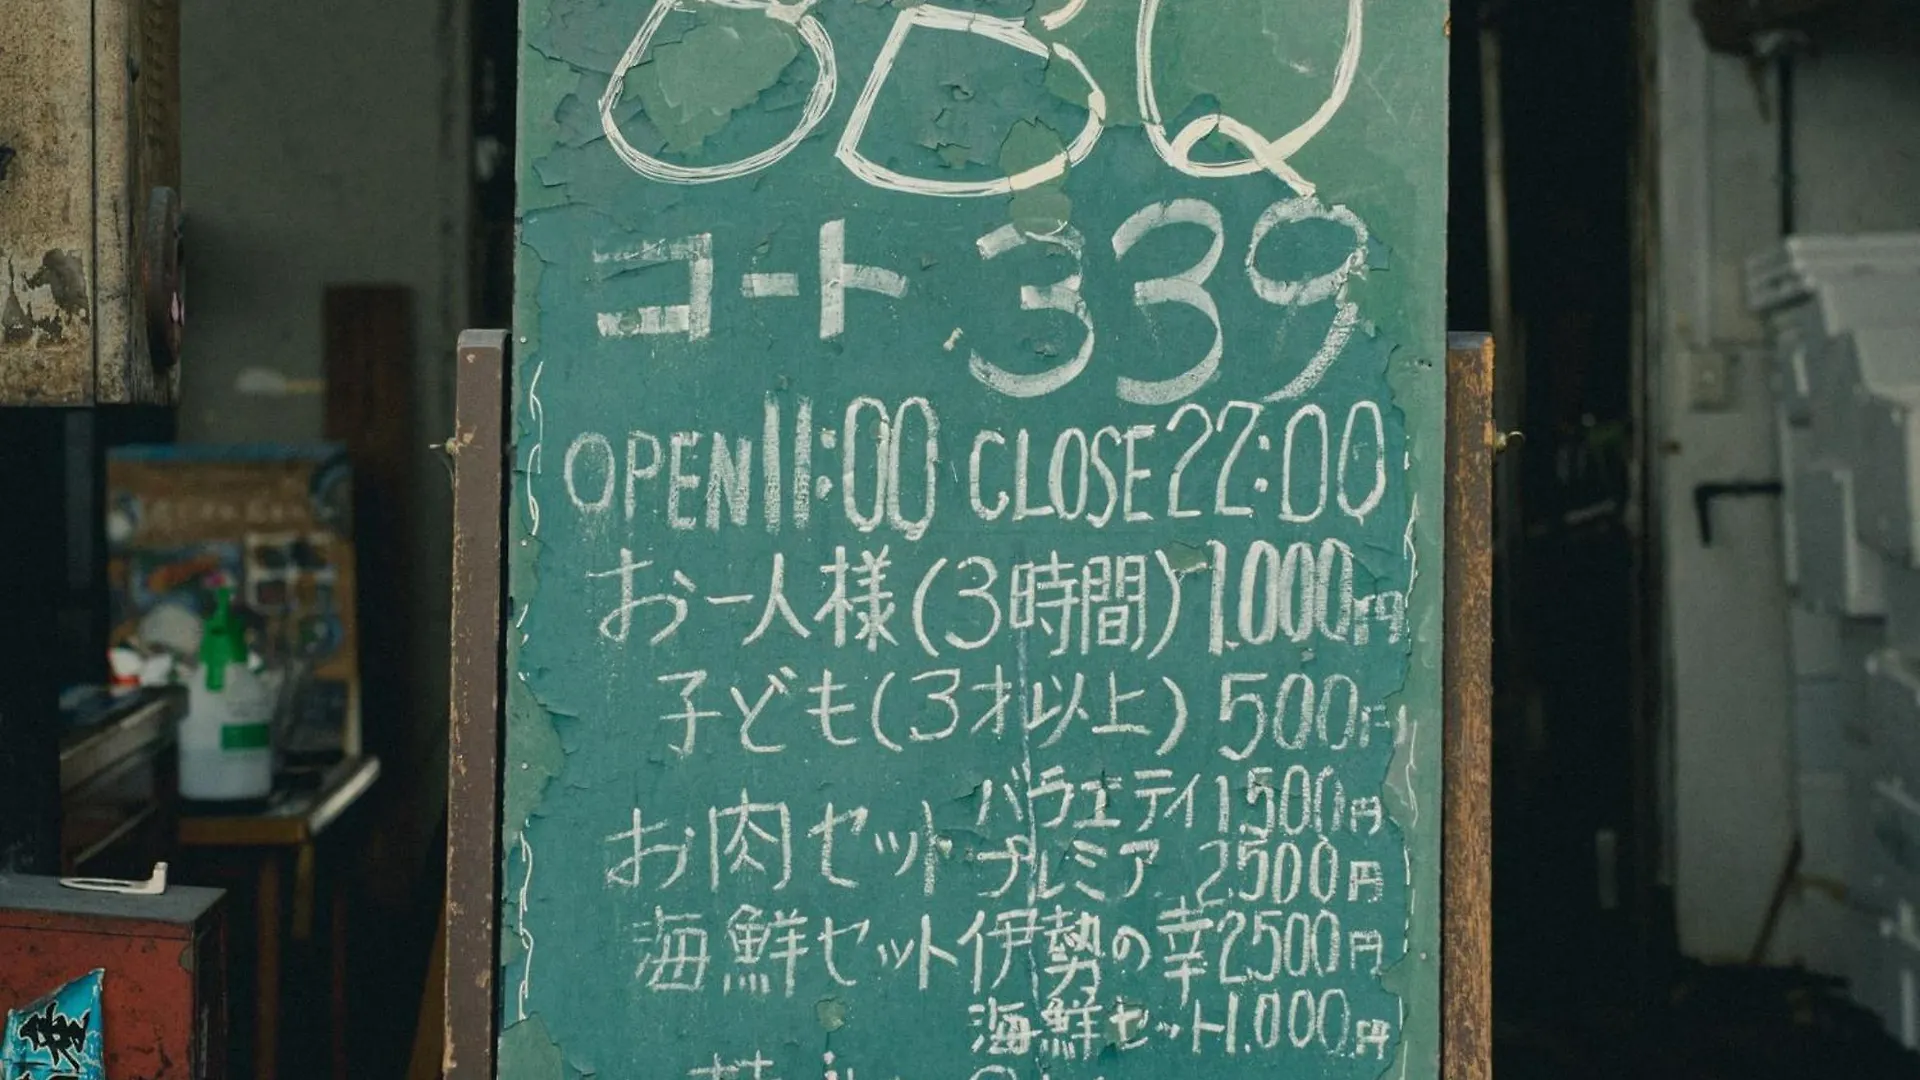 BBQ
コート339
OPEN 11:00 CLOSE 22:00
お一人様(3時間) 1.000円
子ども(3才以上) 500円
お肉セット バラエティ 1.500円
プレミア 2.500円
海鮮セット 伊勢の幸 2500円
海鮮セット 1.000円